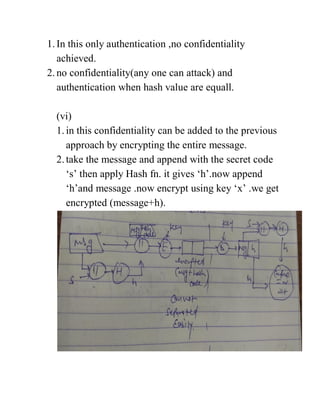 1. In this only authentication ,no confidentiality
achieved.
2. no confidentiality(any one can attack) and
authentication when hash value are equall.
(vi)
1. in this confidentiality can be added to the previous
approach by encrypting the entire message.
2. take the message and append with the secret code
‘s’ then apply Hash fn. it gives ‘h’.now append
‘h’and message .now encrypt using key ‘x’ .we get
encrypted (message+h).
key
key
S
Msg
11
E
11
H
h
S
11
H
h
h
encrypted
msg+hash
code